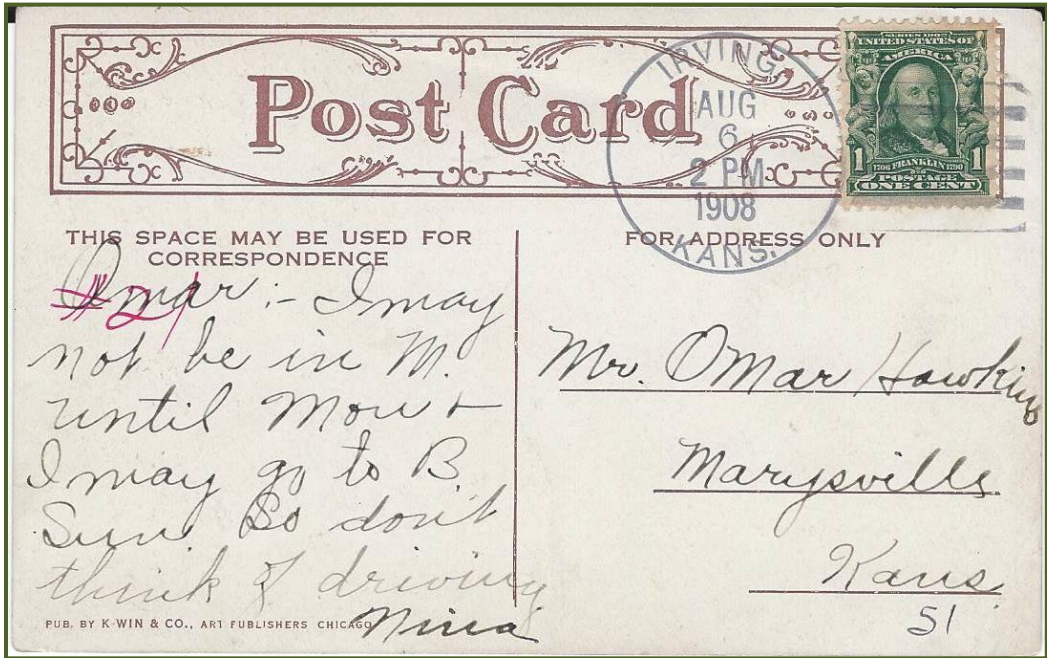 Post Card
IRVING,
AUG
6
2 PM
1908
KANS.
SERIES 1902
UNITED STATES OF
AMERICA
1706 FRANKLIN 1790
POSTAGE
1 ONE CENT 1
THIS SPACE MAY BE USED FOR
CORRESPONDENCE
#21
Omar :- I may
not be in M.
until Mon +
I may go to B
Sun. So don't
think of driving
Nina
PUB. BY K-WIN & CO., ART PUBLISHERS CHICAGO
FOR ADDRESS ONLY
Mr. Omar Hawkins
Marysville
Kans.
51